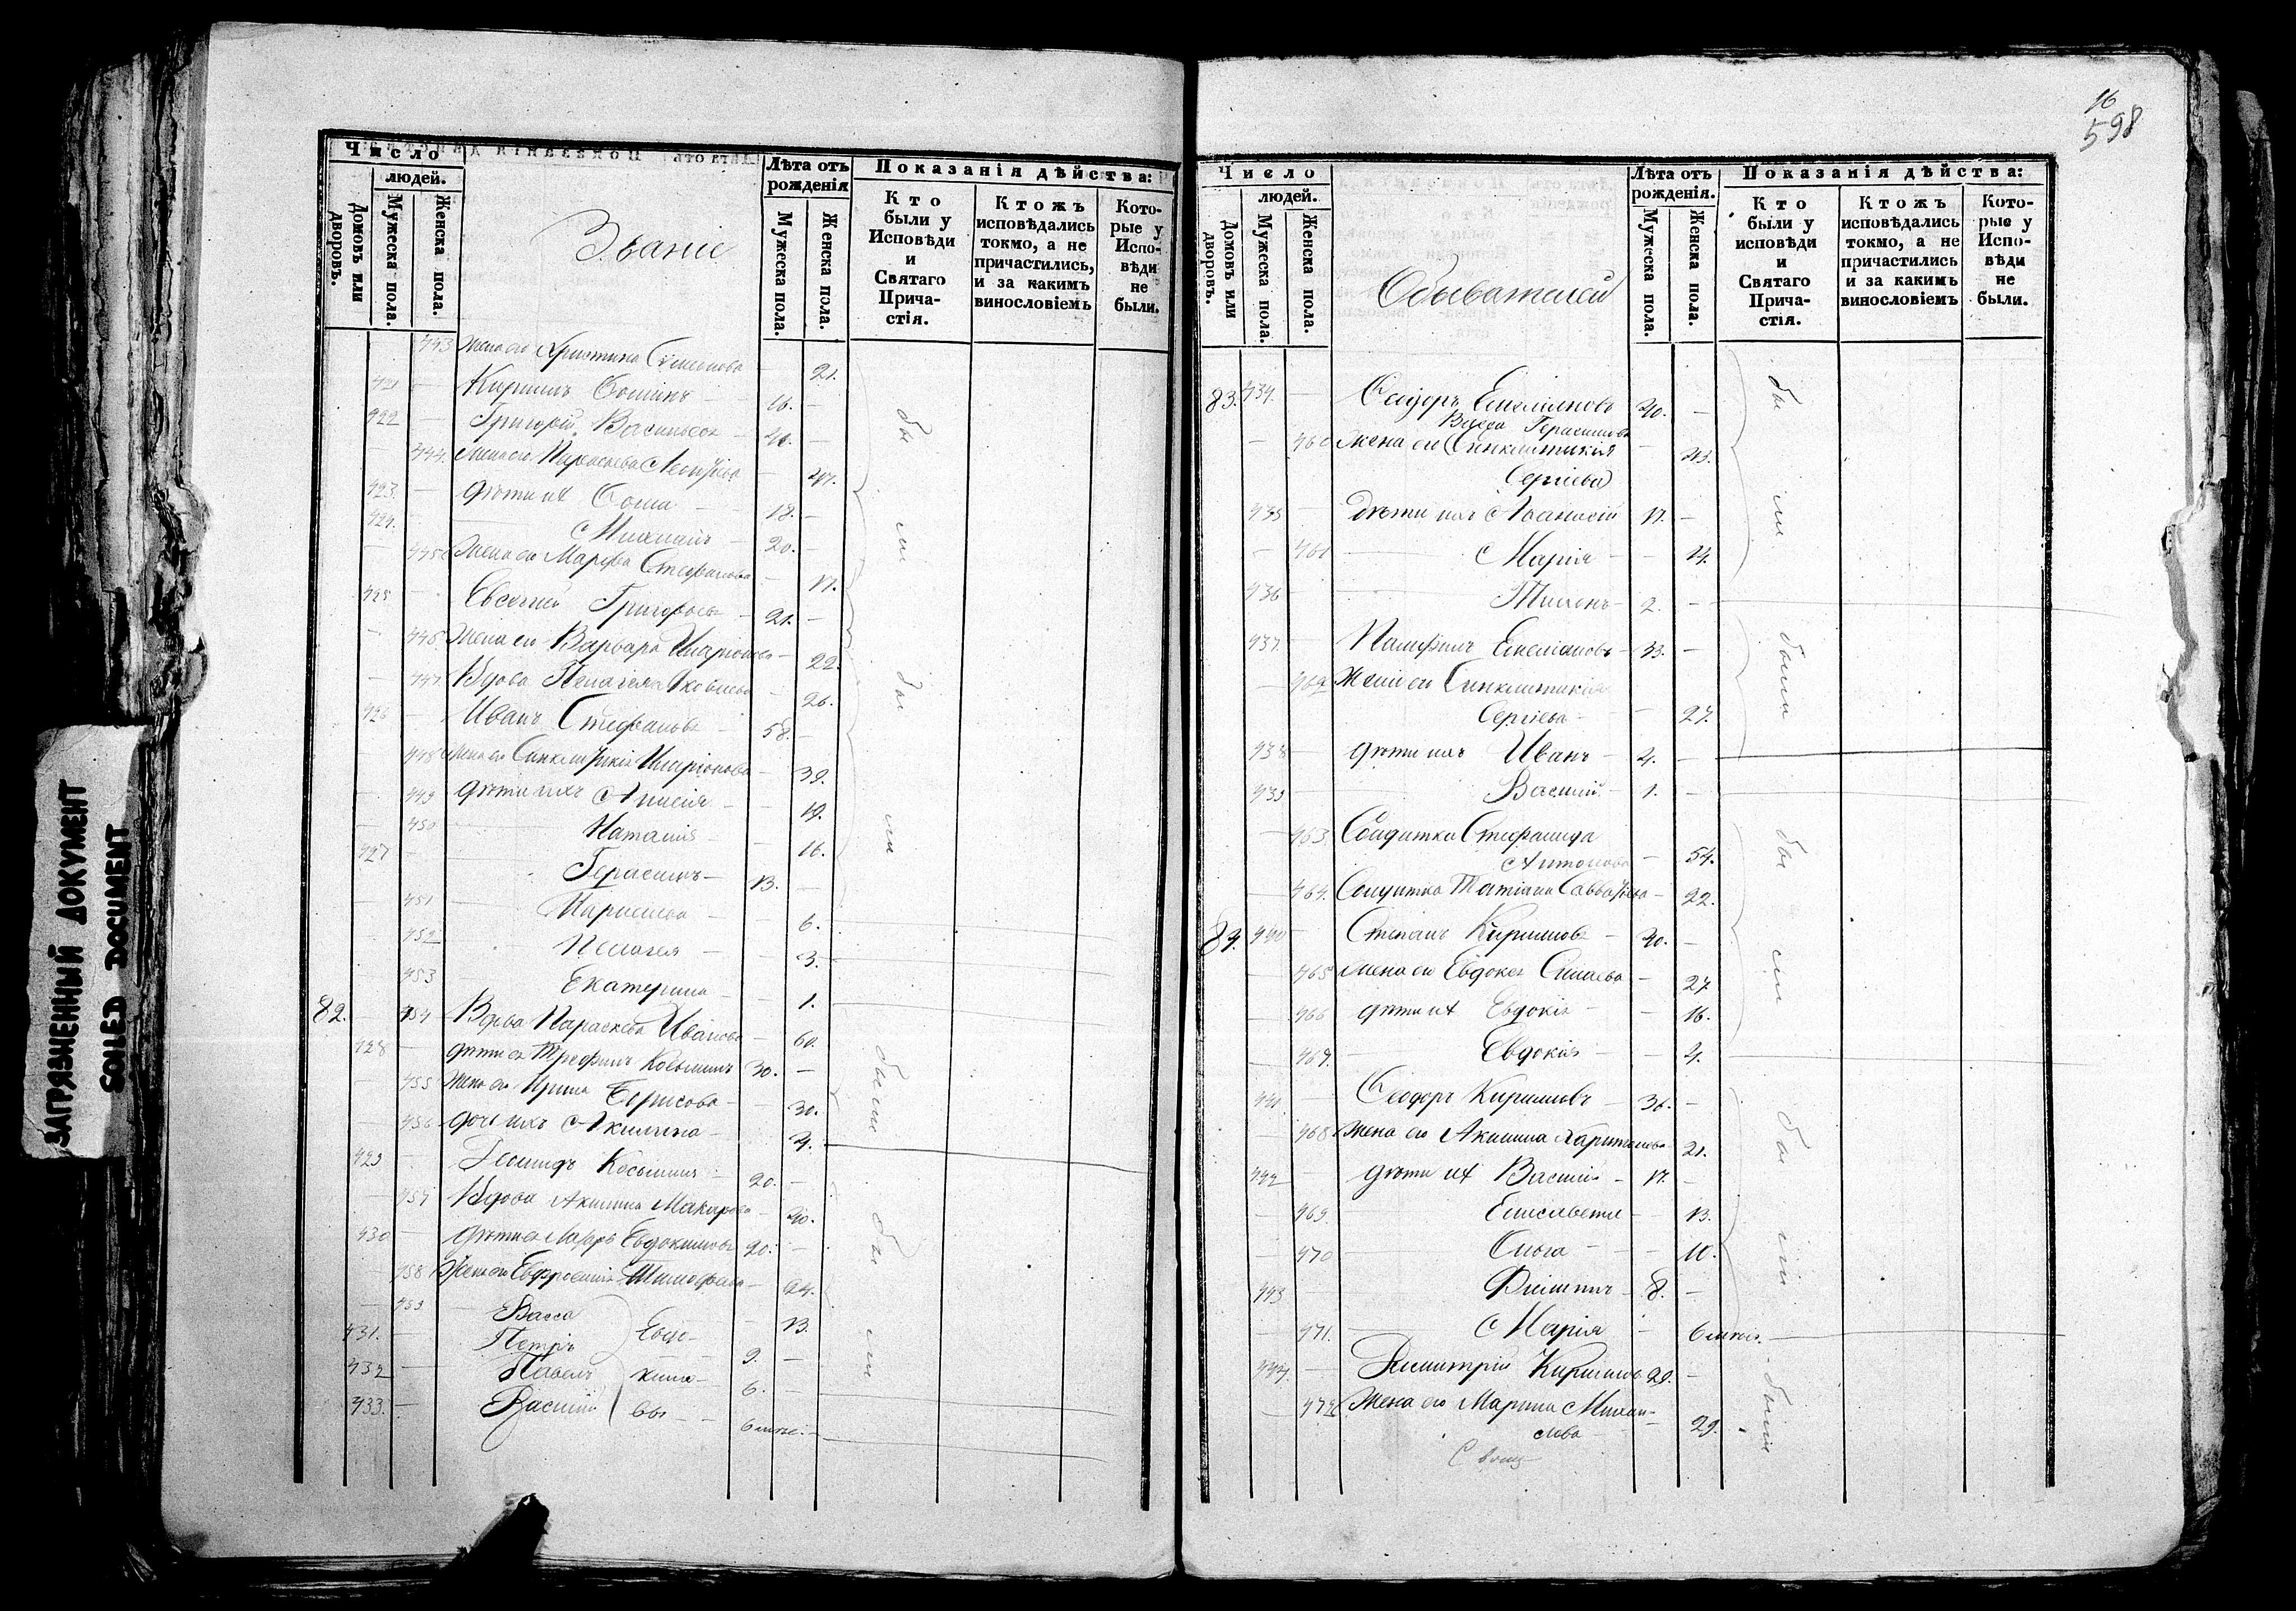 ЗАГРЯЗНЕННЫЙ ДОКУМЕНТ
SOILED DOCUMENT
16
598
Число
людей.
Домовъ или дворовъ.
Мужеска пола.
Женска пола.
Званіе
Лѣта отъ рожденія
Мужеска пола.
Женска пола.
Показанія дѣйства:
Кто были у Исповѣди и Святаго Прича-стія.
Ктожъ исповѣдались токмо, а не причастились, и за какимъ винословіемъ
Кото-рые у Испо-вѣди не были.
443 Жена его Христина Симеонова 21.
421 Кирилъ 16.
422 Григорій Васильевъ
444. Жена его Параскева
423. дѣти их 18.
424. Михаилъ 20.
445 Жена его Марфа Стефанова 17.
425 Евсегней Григорьевъ 21.
446. Жена его Варвара Иларіонова 22.
447 Вдова Пелагея Яковлева 26.
426 Иванъ Стефановъ 58.
448 Жена его Синклитикія Иларіонова 39.
449 дѣти ихъ Анисія 19.
450 Наталия 16.
427 Герасимъ 13.
451 Параскева 6.
452 Пелагея 3.
453 Екатерина 1.
82. 454 Вдова Параскева Иванова 60.
428 дѣти ея Трефилъ Косьминъ 30.
455 Жена его Ирина Борисова 30.
456 дочь ихъ Акилина 4.
429 Косьминъ 20.
457 Вдова Акилина Макарова 40.
430 дѣти ея Евдокимовъ 20.
458 Жена его Евфросинія Тимофеева 24.
459 Васса 13.
431. Петръ Евдо- 9.
432 Павелъ кимо- 6.
433. Василій вы 6 мѣс.
были
были
были
были
Число
людей.
Домовъ или дворовъ.
Мужеска пола.
Женска пола.
Обывателей
Лѣта отъ рожденія.
Мужеска пола.
Женска пола.
Показанія дѣйства:
Кто были у исповѣди и Святаго Прича-стія.
Ктожъ исповѣдались токмо, а не причастились и за какимъ винословіемъ
Кото-рые у Испо-вѣди не были.
83. 434. Сидоръ Емеліановъ 40.
Васса Герасимова
460 жена его (Синклитикія 43.
Сергіева)
435 дѣти ихъ Аѳанасій 17.
461 Марія 14.
436 Тихонъ 2.
437. Памфилъ Емеліановъ 33.
462 Жена его Синклитикія
Сергіева 27.
438 дѣти ихъ Иванъ 4.
439 Василій 1.
463 Солдатка Стефанида
Антонова 54.
464. Солдатка Татіана Савватіева 22.
84. 440 Степанъ Кириловъ 40.
465 жена его Евдокея 27
466 дѣти их Евдокія 16.
467. Евдокія 4.
441. Ѳеодоръ Кириловъ 36.
468 Жена его Акилина Харитонова 21.
442 дѣти их Василій 17.
469. Елисавета 13.
470 Ольга 10.
443 Филиппъ 8.
471. Марія 6 мѣс.
444. Димитрій Кириловъ 29.
472 Жена его Марина Михаи-
лова 29.
были
были
были
были
были